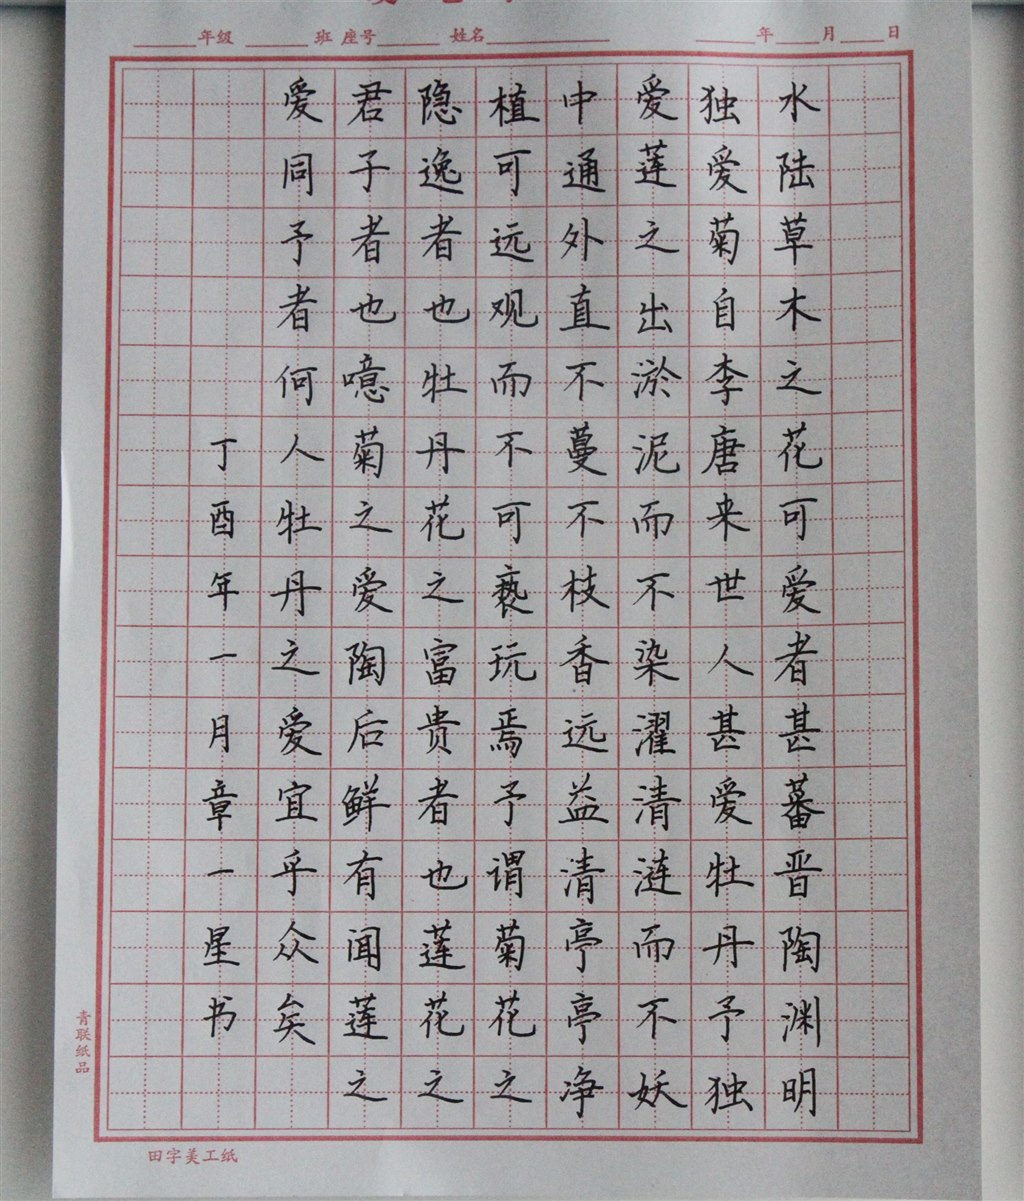 年级 班 座号 姓名 年 月 日
水陆草木之花可爱者甚蕃晋陶渊明
独爱菊自李唐来世人甚爱牡丹予独
爱莲之出淤泥而不染濯清涟而不妖
中通外直不蔓不枝香远益清亭亭净
植可远观而不可亵玩焉予谓菊花之
隐逸者也牡丹花之富贵者也莲花之
君子者也噫菊之爱陶后鲜有闻莲之
爱同予者何人牡丹之爱宜乎众矣
丁酉年一月章一星书
青联纸品
田字美工纸